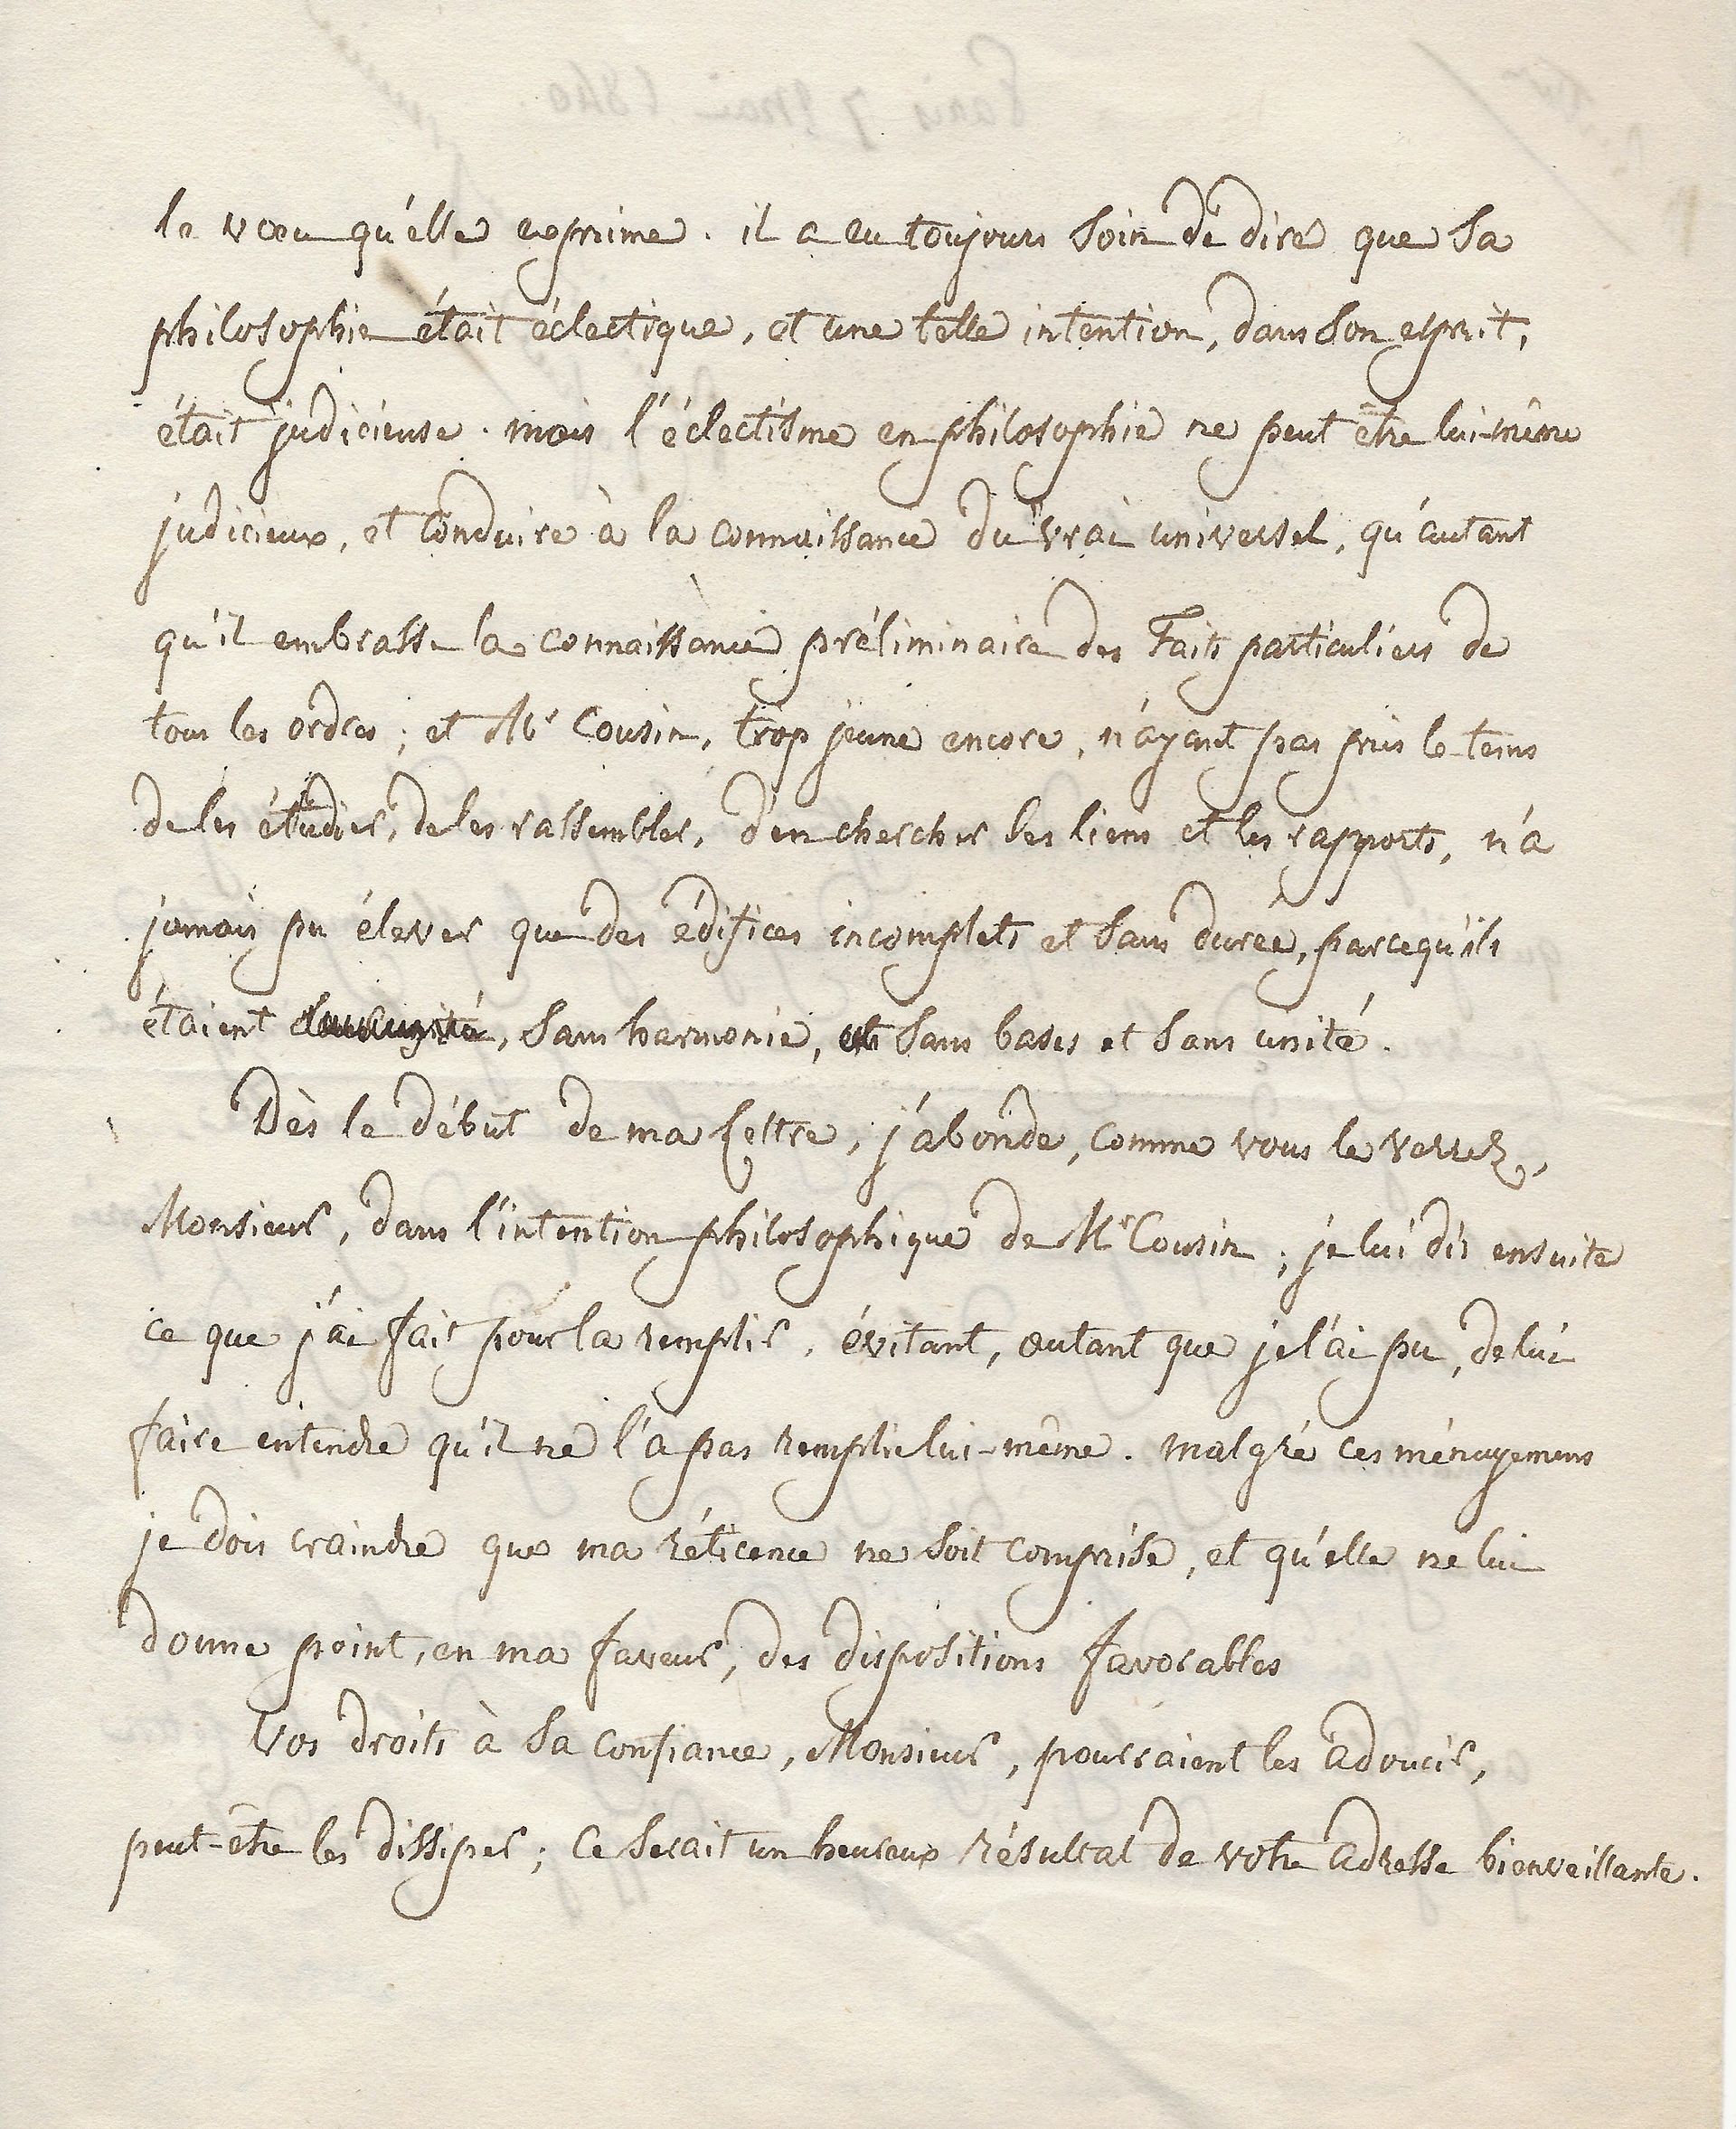 le vœu qu'elle exprime. il a eu toujours soin de dire que sa
philosophie était éclectique, et une telle intention, dans son esprit,
était judicieuse. mais l'éclectisme en philosophie ne peut être lui-même
judicieux, et conduire à la connaissance du vrai universel, qu'autant
qu'il embrasse la connaissance préliminaire des Faits particuliers de
tous les ordres ; et Mr Cousin, trop jeune encore, n'ayant pas pris le tems
de les étudier, de les rassembler, d'en chercher les liens et les rapports, n'a
jamais pu élever que des édifices incomplets et sans durée, parcequ'ils
étaient, sans harmonie, sans bases et sans unité.
Dès le début de ma lettre, j'abonde, comme vous le verrez,
Monsieur, dans l'intention philosophique de Mr Cousin ; je lui dis ensuite
ce que j'ai fait pour la remplir, évitant, autant que je l'ai pu, de lui
faire entendre qu'il ne l'a pas remplie lui-même. malgré ces ménagemens
je dois craindre que ma réticence ne soit comprise, et qu'elle ne lui
donne point, en ma faveur, des dispositions favorables
Vos droits à sa confiance, Monsieur, pourraient les adoucir,
peut-être les dissiper ; ce serait un heureux résultat de votre adresse bienveillante.